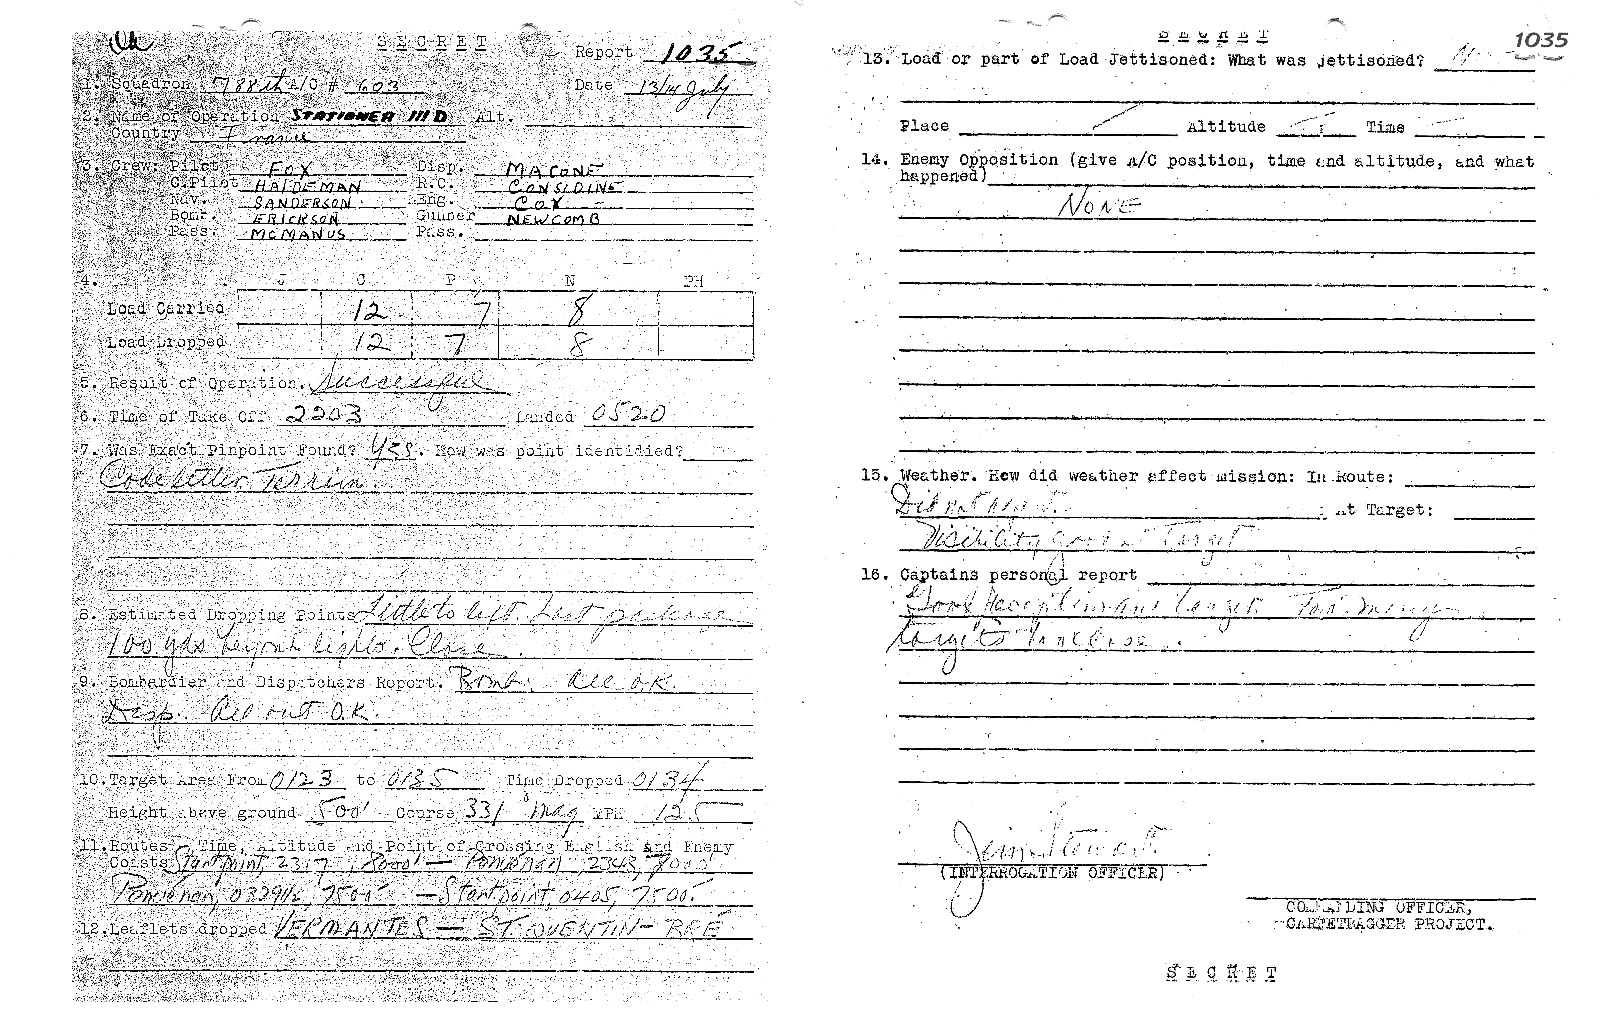 SECRET
Report 1035
1. Squadron 788th A/C # 603 Date 13/14 July
2. Name of Operation STATIONER 111 D Alt.
Country France
3. Crew: Pilot FOX Disp. MACONE
C.Pilot HALDEMAN R.C. CONSIDINE
Nav. SANDERSON Eng. COX
Bomr. ERICKSON Gunner NEWCOMB
Pass. MCMANUS Pass.
4. J C P N PH
Load Carried 12 7 8
Load Dropped 12 7 8
5. Result of Operation. Successful
6. Time of Take Off 2203 Landed 0520
7. Was Exact Pinpoint Found? Yes. How was point identidied?
Code letter Terrain.
8. Estimated Dropping Points Little to left. Last package
100 yds beyond lights. Close.
9. Bombardier and Dispatchers Report. Bomb. All O.K.
Disp. All out O.K.
10. Target Area From 0123 to 0135 Time Dropped 0134
Height above ground 500' Course 331° Mag MPH 125
11. Routes - Time, Altitude and Point of Crossing English and Enemy
Coasts Start point, 2317, 8000' —
0329½, 7500' — Start point, 0405, 7500'.
12. Leaflets dropped VERNANTES — ST. QUENTIN — BRÉ
SECRET
1035
13. Load or part of Load Jettisoned: What was jettisoned?
Place Altitude Time
14. Enemy Opposition (give A/C position, time and altitude, and what
happened)
NONE
15. Weather. How did weather effect mission: In Route:
Did not At Target:
Visibility good at Target
16. Captains personal report
Good Reception and target. Too many
targets too close.
Jim Stewart
(INTERROGATION OFFICER)
COMMANDING OFFICER,
CARPETBAGGER PROJECT.
SECRET